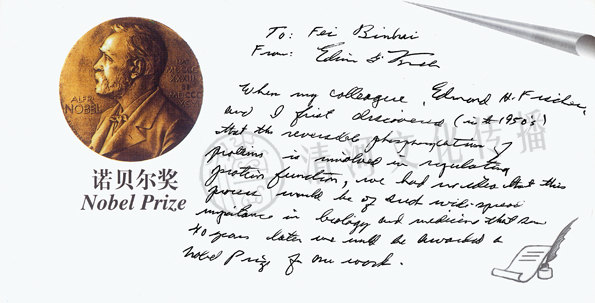 To: Fei Binhai
From: Edwin G. Krebs
When my colleague, Edmond H. Fischer,
and I first discovered (in the 1950's)
that the reversible phosphorylation of
proteins is involved in regulating
protein function, we had no idea that this
process would be of such wide-spread
importance in biology and medicine that some
40 years later we would be awarded a
Nobel Prize for our work.
ALFR.
NOBEL
诺贝尔奖
Nobel Prize
清湖文化传播